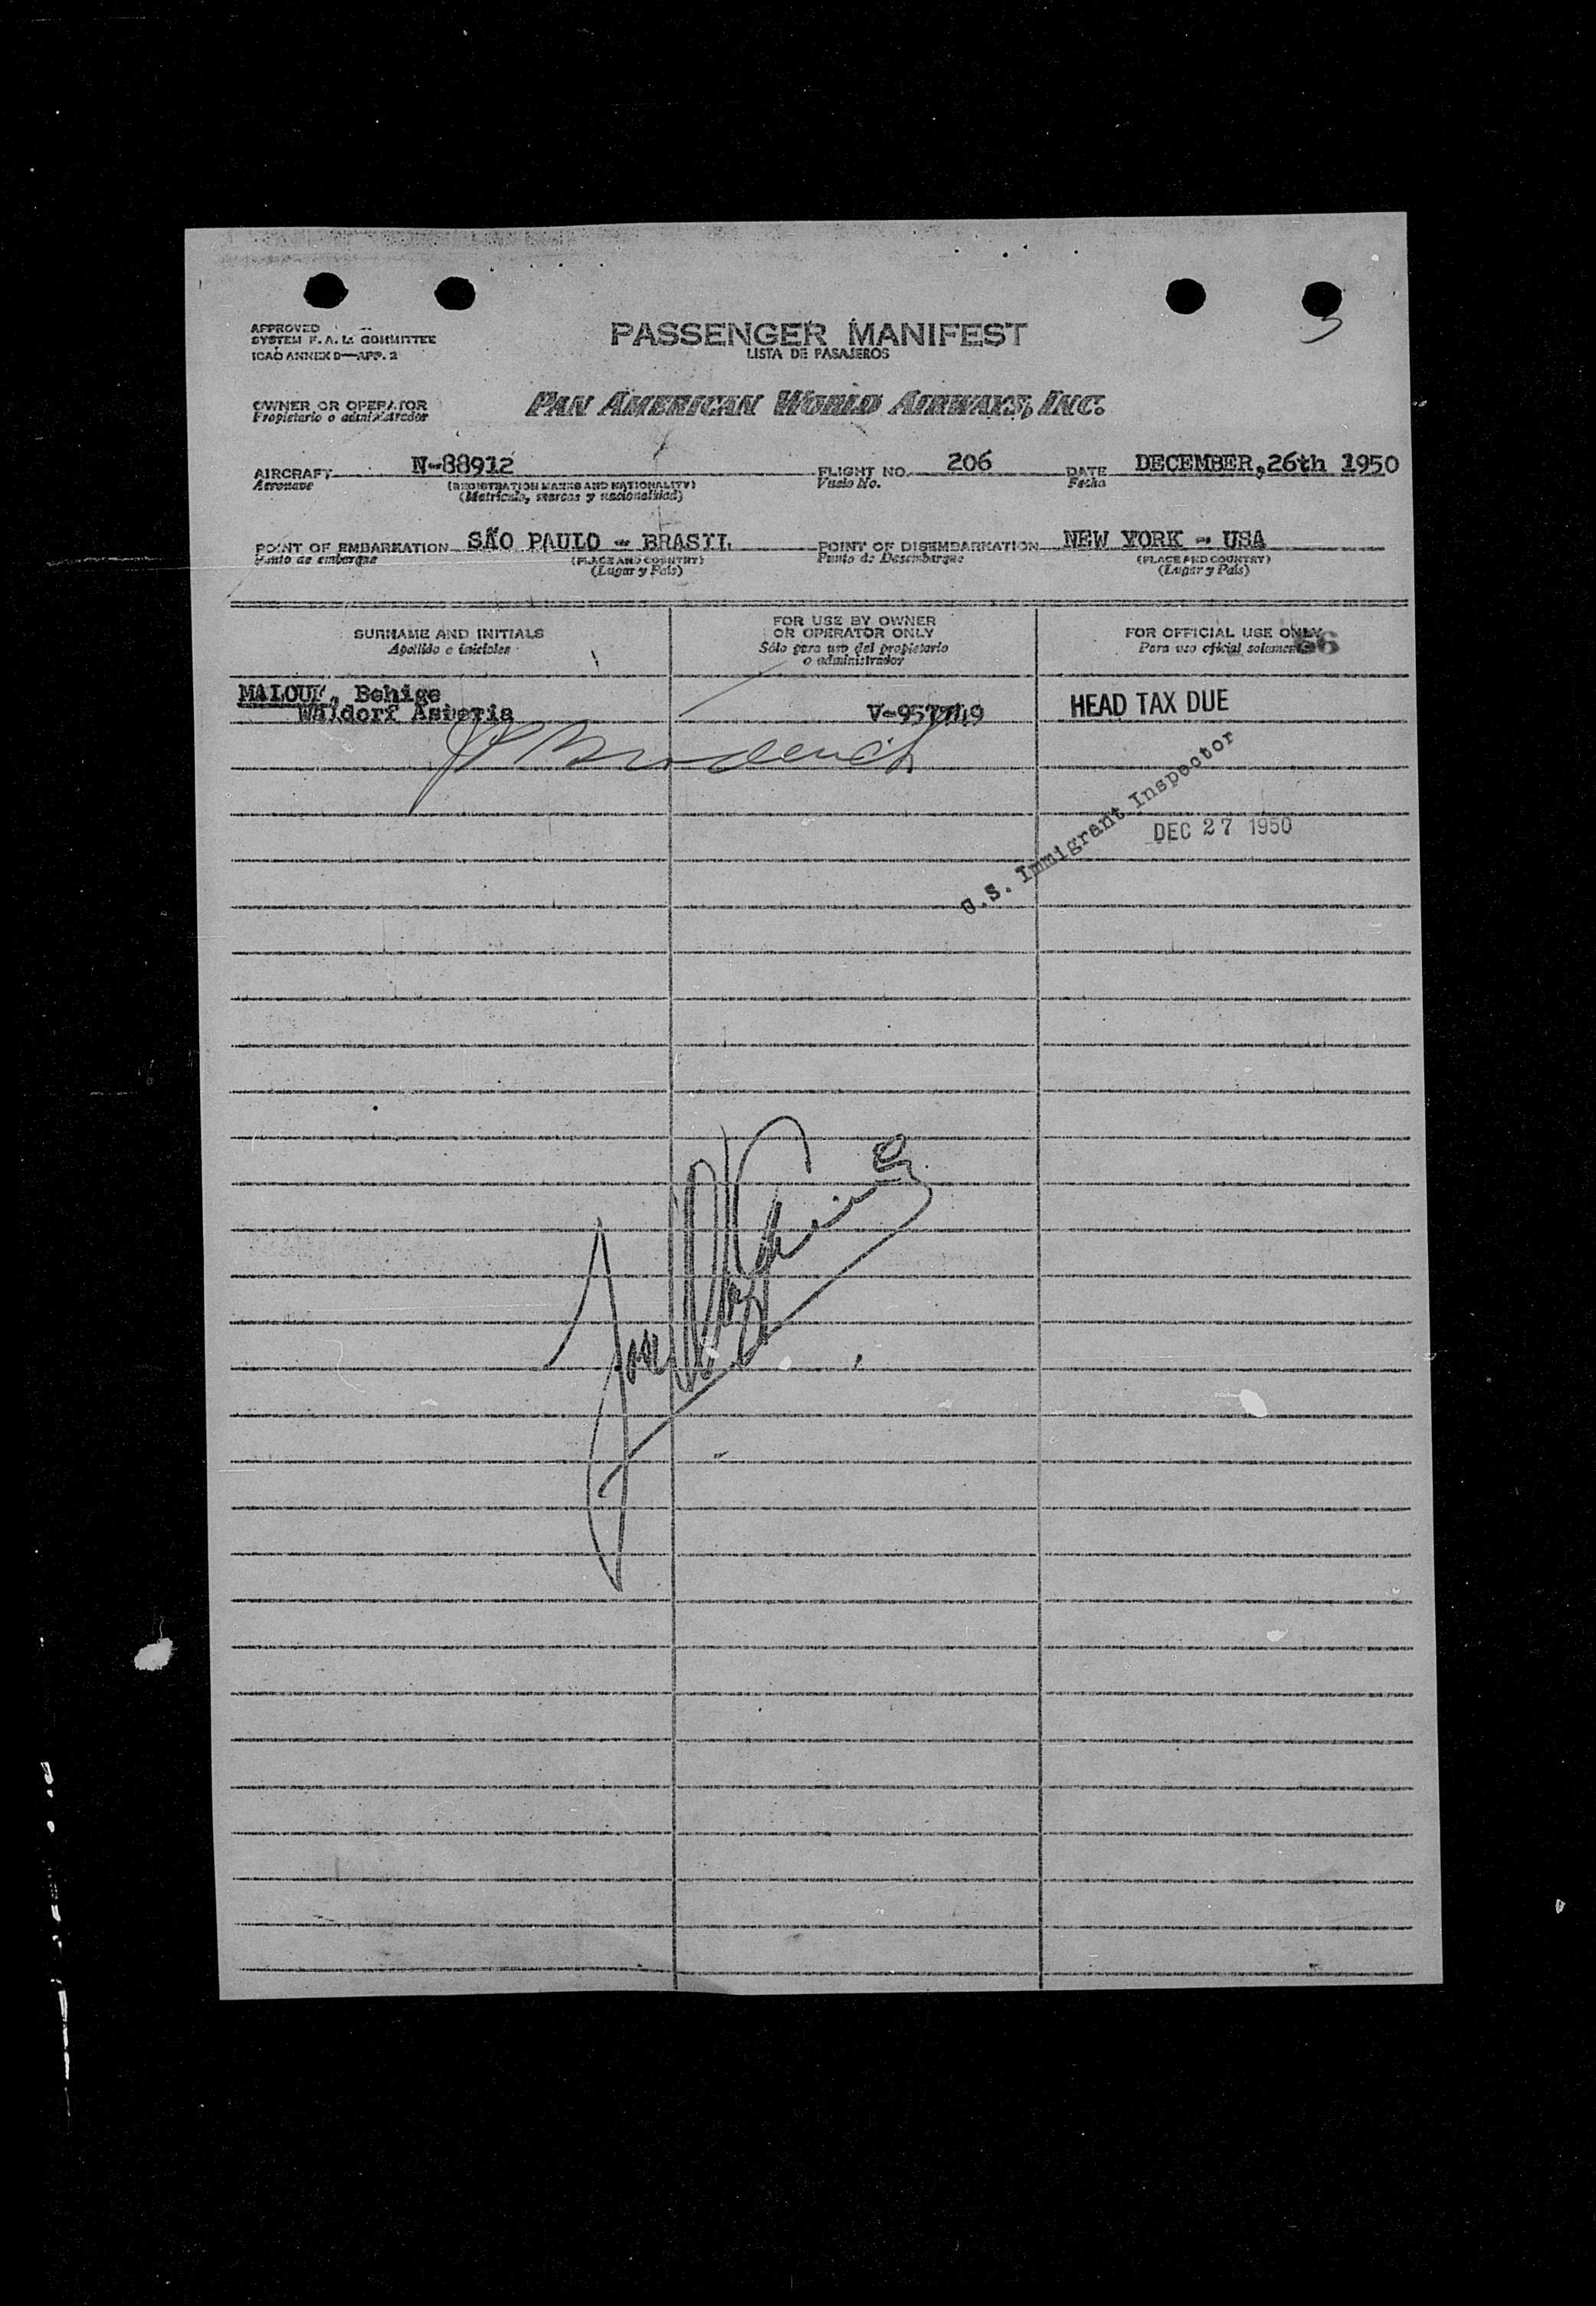 3
APPROVED
SYSTEM F. A. L. COMMITTEE
ICAO ANNEX 9—APP. 2
PASSENGER MANIFEST
LISTA DE PASAJEROS
OWNER OR OPERATOR
Propietario o administrador
PAN AMERICAN WORLD AIRWAYS, INC.
AIRCRAFT N-88912 FLIGHT NO. 206 DATE DECEMBER,26th 1950
Aeronave (REGISTRATION MARKS AND NATIONALITY) Vuelo No. Fecha
(Matrícula, marcas y nacionalidad)
POINT OF EMBARKATION SÃO PAULO - BRASIL POINT OF DISEMBARKATION NEW YORK - USA
Punto de embarque (PLACE AND COUNTRY) Punto de Desembarque (PLACE AND COUNTRY)
(Lugar y País) (Lugar y País)
SURNAME AND INITIALS
Apellido e iniciales
FOR USE BY OWNER
OR OPERATOR ONLY
Sólo para uso del propietario
o administrador
FOR OFFICIAL USE ONLY
Para uso oficial solamente
56
MALOUF, Behige
Waldorf Astoria
HEAD TAX DUE
U.S. Immigrant Inspector
DEC 27 1950